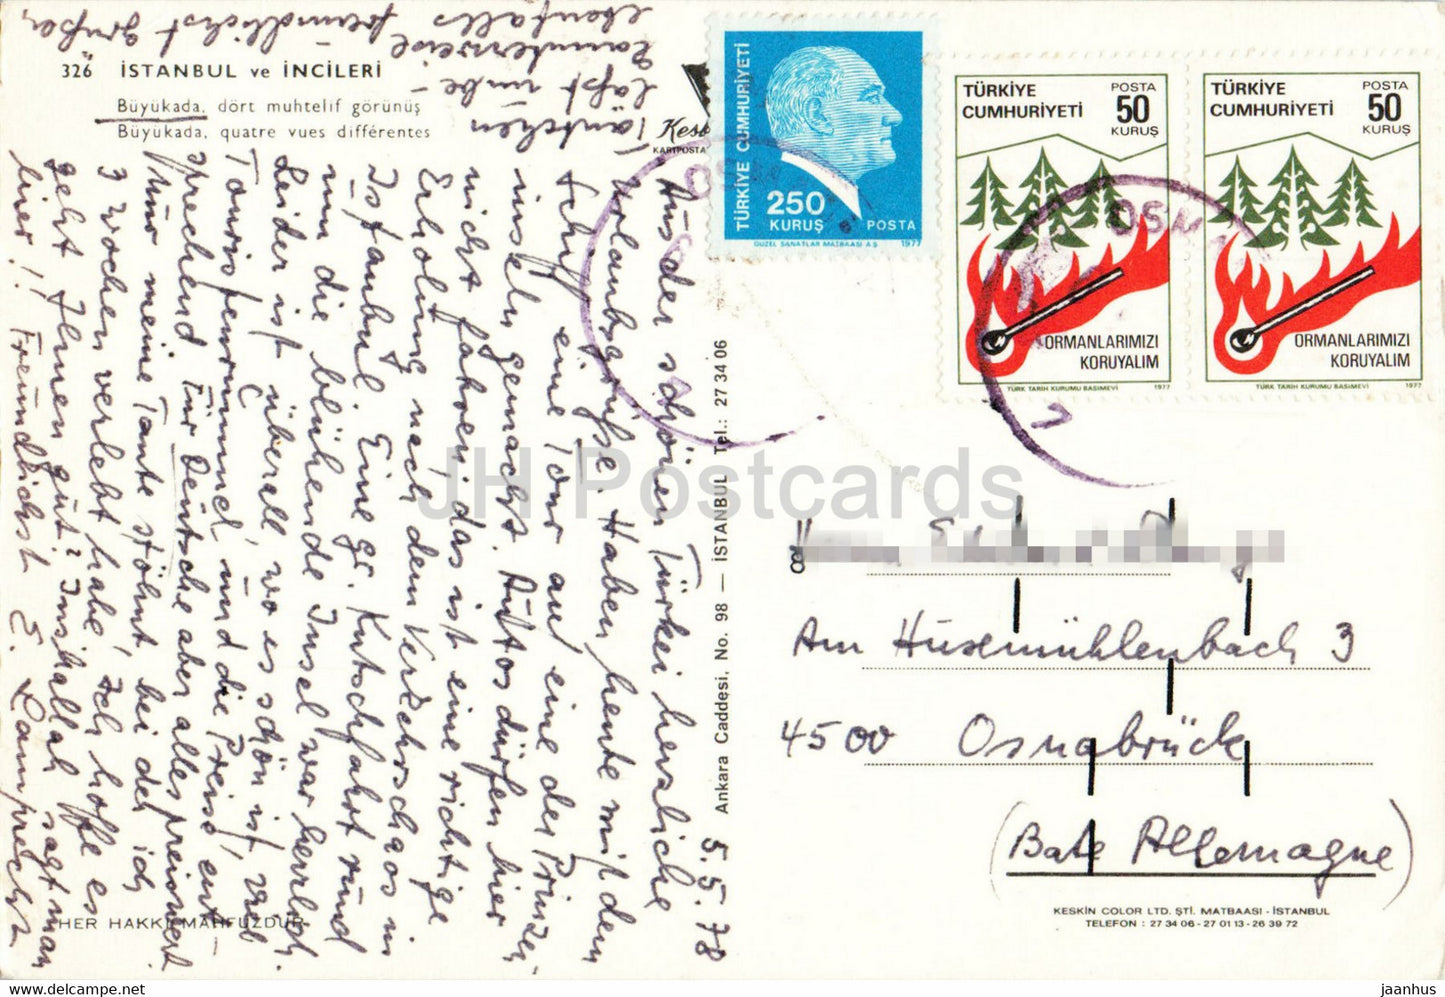 326 İSTANBUL ve İNCİLERİ
Büyükada, dört muhtelif görünüş
Büyükada, quatre vues différentes
5.5.78
Aus der schönen Türkei herzliche
Urlaubsgrüße. Haben heute mit dem
Schiff eine Tour auf eine der Prinzen-
inseln gemacht. Autos dürfen hier
nicht fahren, das ist eine richtige
Erholung nach dem Verkehrschaos in
Istanbul. Eine gr. Kutschfahrt rund
um die blühende Insel war herrlich.
Leider ist überall, wo es schön ist, viel
Tourisfenrummel, und die Preise ent-
sprechend. Für Deutsche aber alles preiswert
Nur meine Tante stöhnt, bei der ich
3 Wochen verlebt habe, Ich hoffe es
geht Ihnen gut? Inshallah sagt man
hier! Freundlichst E. Lamprecht
Tantchen
läßt unbe-
kannterweise
ebenfalls freundlichst grüßen
HER HAKKI MAHFUZDUR
Kesk
KARTPOSTA
Ankara Caddesi, No. 98 — İSTANBUL Tel.: 27 34 06
TÜRKİYE CUMHURİYETİ
250
KURUŞ
POSTA
GÜZEL SANATLAR MATBAASI A.Ş. 1977
TÜRKİYE
CUMHURİYETİ
POSTA
50
KURUŞ
ORMANLARIMIZI
KORUYALIM
TÜRK TARİH KURUMU BASIMEVİ 1977
TÜRKİYE
CUMHURİYETİ
POSTA
50
KURUŞ
ORMANLARIMIZI
KORUYALIM
TÜRK TARİH KURUMU BASIMEVİ 1977
OSMA
JH Postcards
Am Hüsemühlenbach 3
4500 Osnabrück
(Allemagne)
KESKİN COLOR LTD. ŞTİ. MATBAASI - İSTANBUL
TELEFON : 27 34 06 - 27 01 13 - 26 39 72
hip-online.net
jaanhus